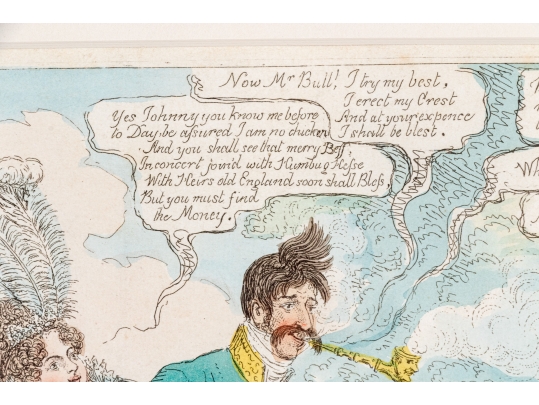 Now Mr Bull! I try my best,
I erect my Crest
And at your expence
I shall be blest.
Yes Johnny you know me before
to Day; be assured I am no chicken
And you shall see that merry Bess,
In concert join'd with Humbug Hesse
With Heirs old England soon shall Bless,
But you must find
the Money.